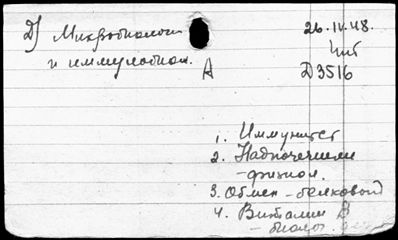 D) Микробиологи
и иммунобиол.
А
26.IV.48.
Чит
D3516
1. Иммунитет
2. Надпочечники
- физиол.
3. Обмен - белковой
4. Витамин В
- биолог.